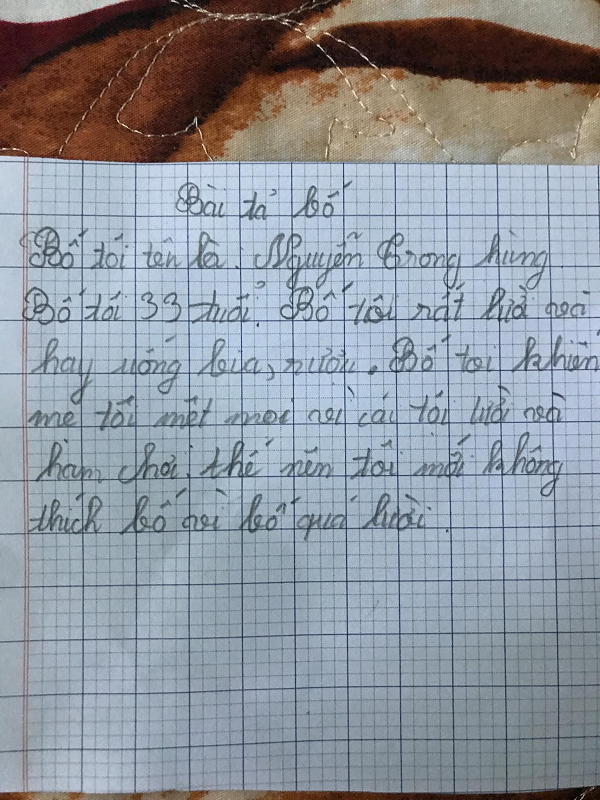 Bài tả bố
Bố tôi tên là: Nguyễn trong hùng
Bố tôi 33 tuổi. Bố tôi rất lười và
hay uống bia, rượu. Bố toi khiến
mẹ tôi mệt moi vì cái tôi lười và
hàm chơi. thế nên tôi mới không
thích bố vì bố quá lười.